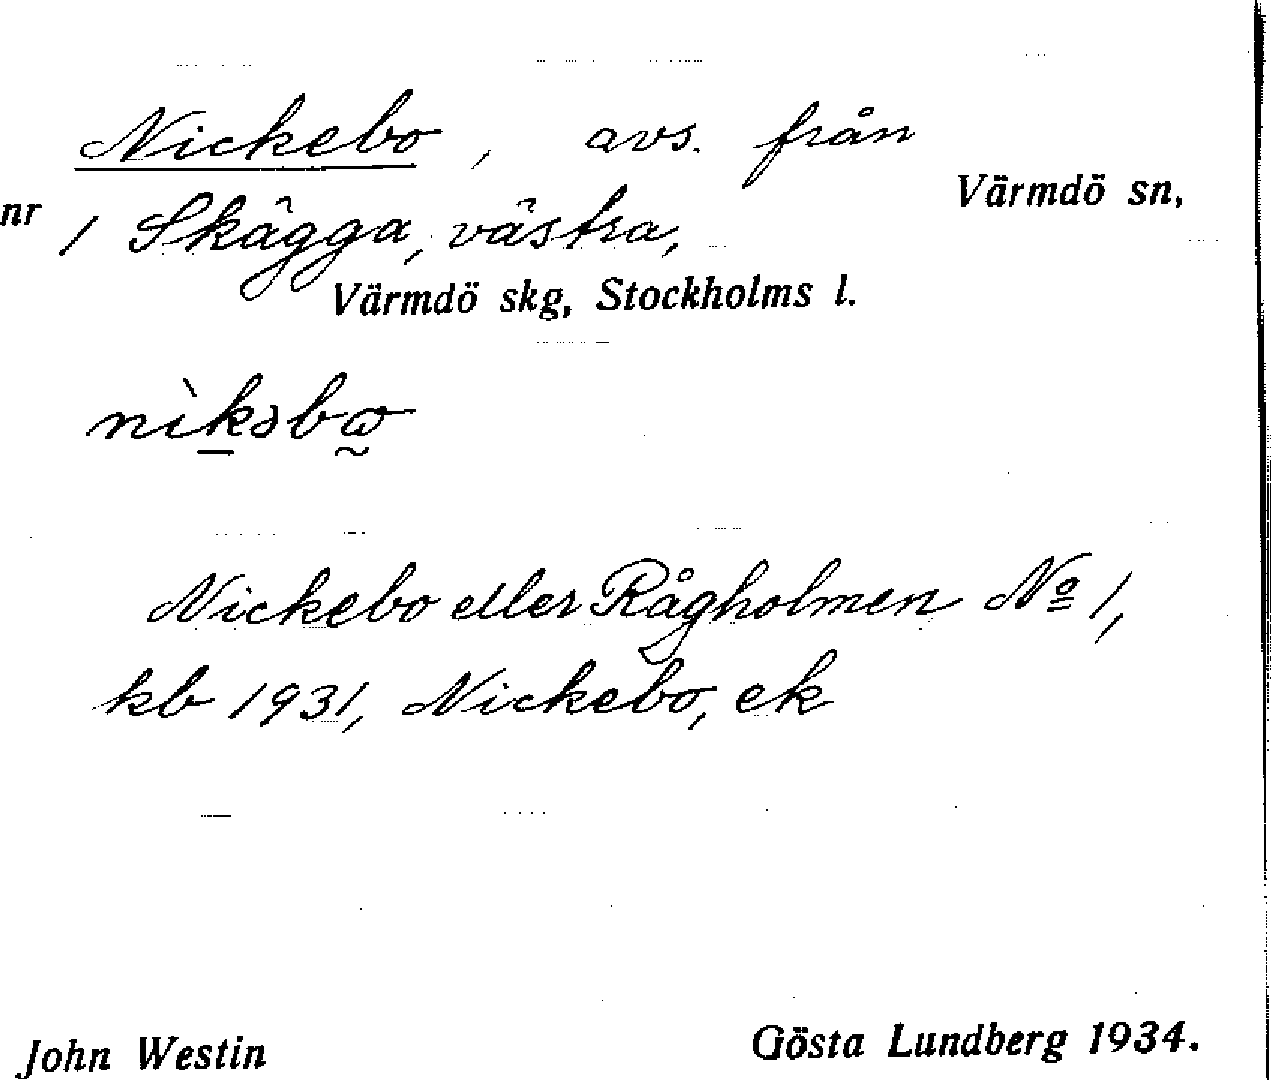 Nickebo, avs. från
Värmdö sn,
nr 1 Skägga, västra,
Värmdö skg, Stockholms l.
nìkəbω
Nickebo eller Rågholmen No 1,
kb 1931, Nickebo, ek
John Westin
Gösta Lundberg 1934.